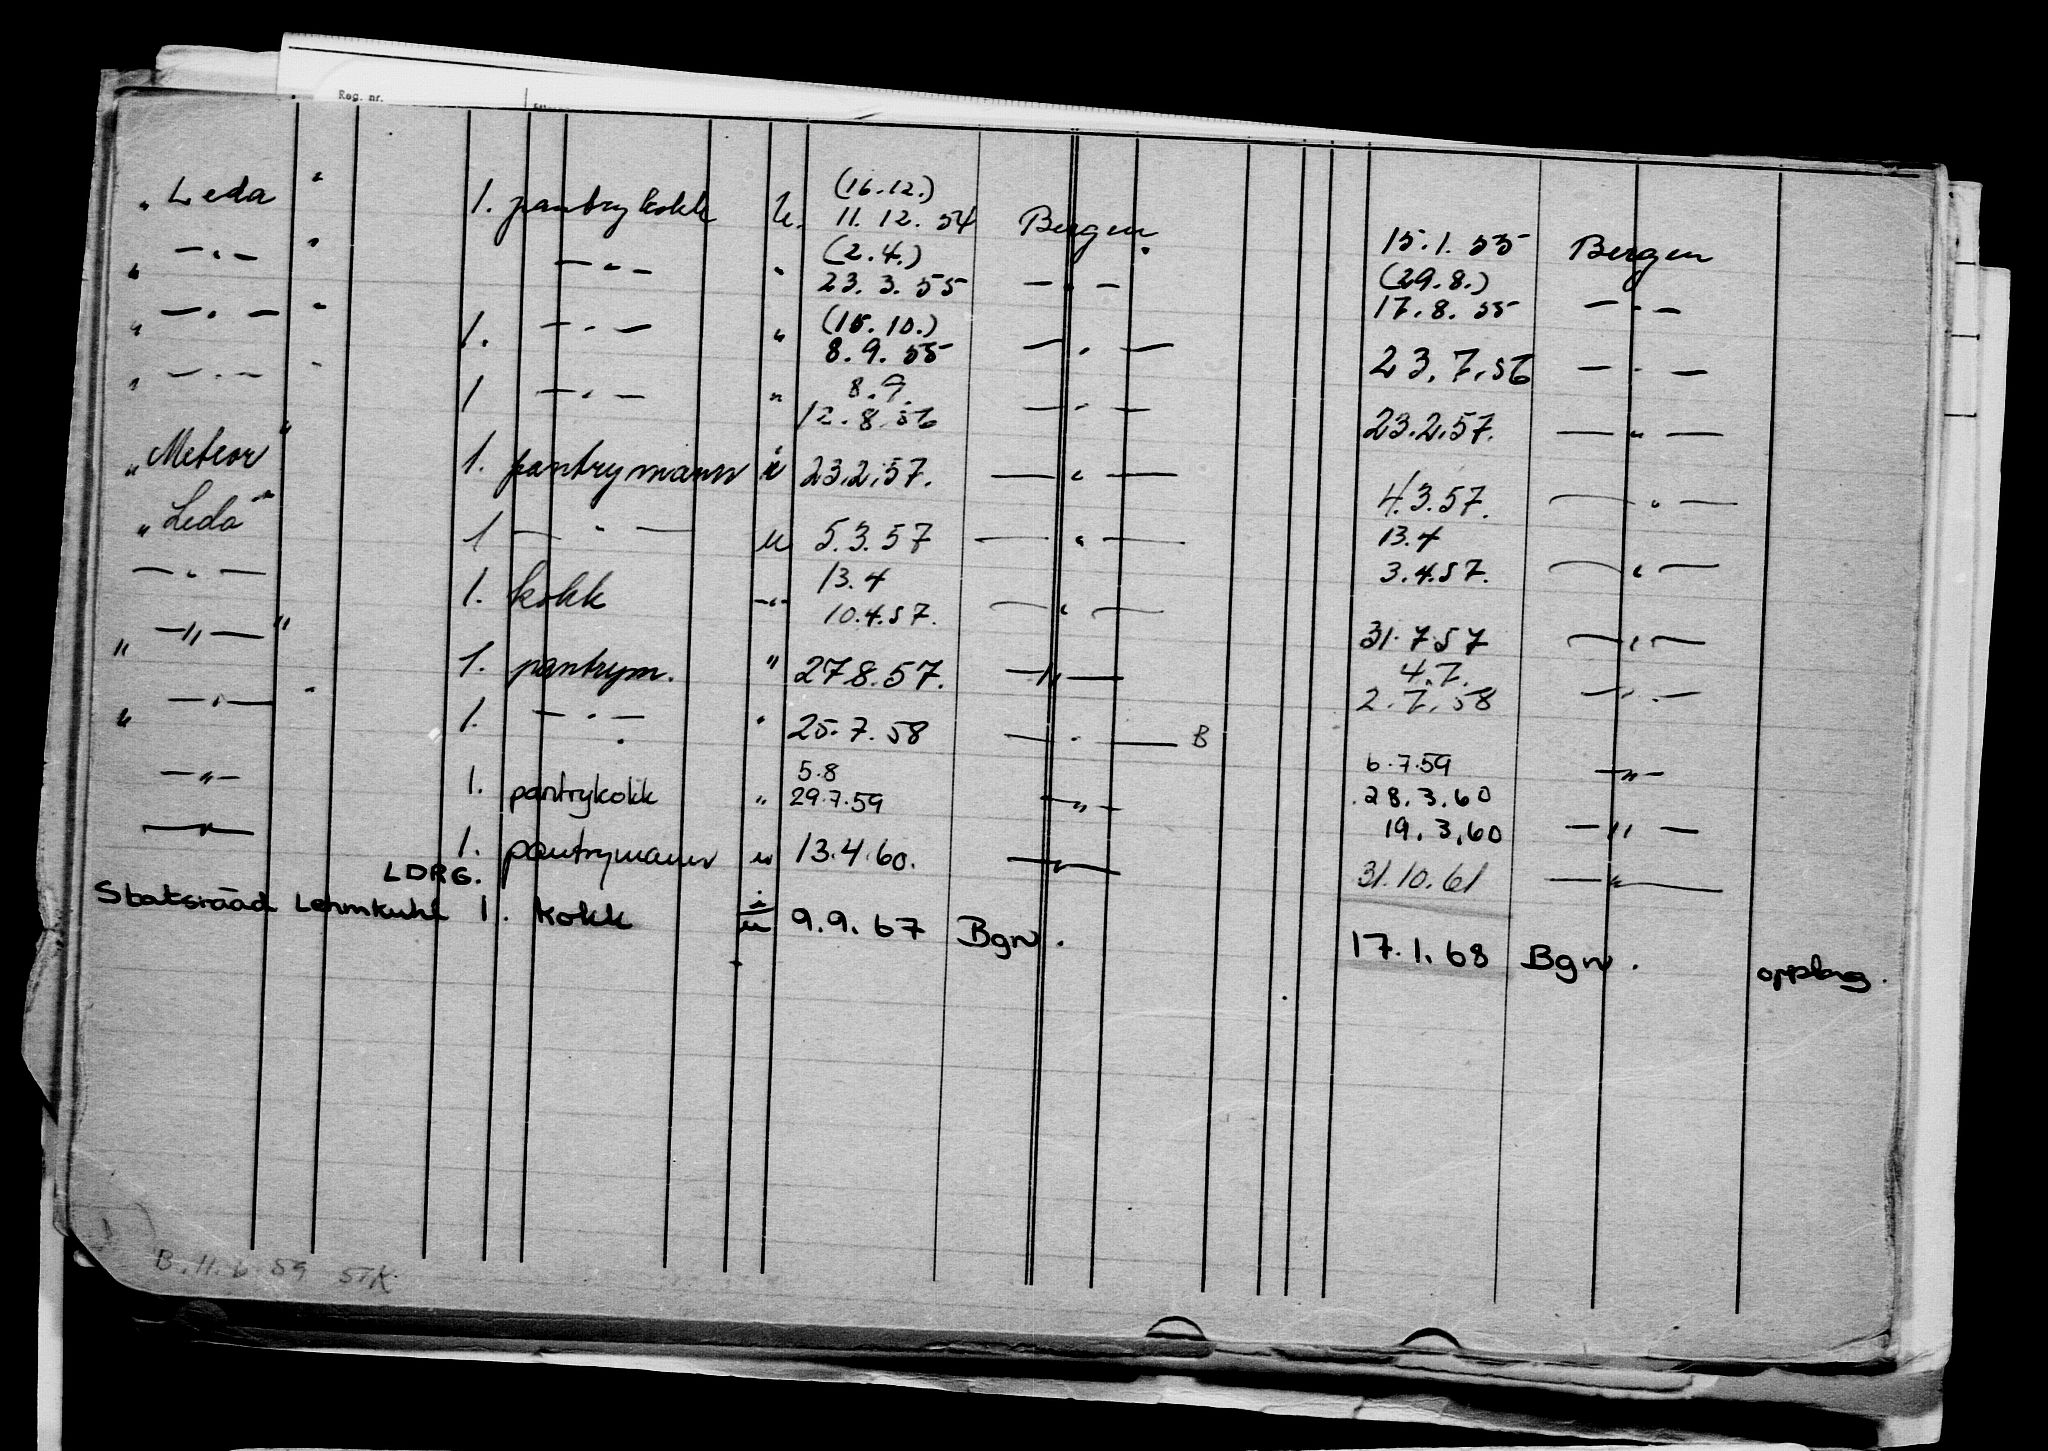 Reg. nr.
" Leda " 1. pantrykokk u. (16.12.) 11.12.54 Bergen. 15.1.55 Bergen
" —"— " —"— " (2.4.) 23.3.55 —"— (29.8.) 17.8.55 —"—
" —"— " 1. —"— " (15.10.) 8.9.55 —"— 23.7.56 —"—
" —"— " 1 —"— " 8.9. 12.8.56 —"— 23.2.57. —"—
" Meteor " 1. pantrymann i 23.2.57. —"— 4.3.57. —"—
" Leda " 1 —"— u 5.3.57 —"— 13.4 3.4.57. —"—
—"— 1. kokk —"— 13.4 10.4.57. —"— 31.7.57 —"—
" —"— " 1. pantrym. " 27.8.57. —"— 4.7. 2.7.58 —"—
" —"— " 1. —"— " 25.7.58 —"— B 6.7.59 —"—
—"— 1. pantrykokk " 5.8 29.7.59 —"— 28.3.60 19.3.60 —"—
—"— 1. pantrymann u 13.4.60. —"— 31.10.61 —"—
LDRG.
Statsraad Lehmkuhl 1. kokk i/u 9.9.67 Bgn. 17.1.68 Bgn. opplag.
B. 11.6.59 STK